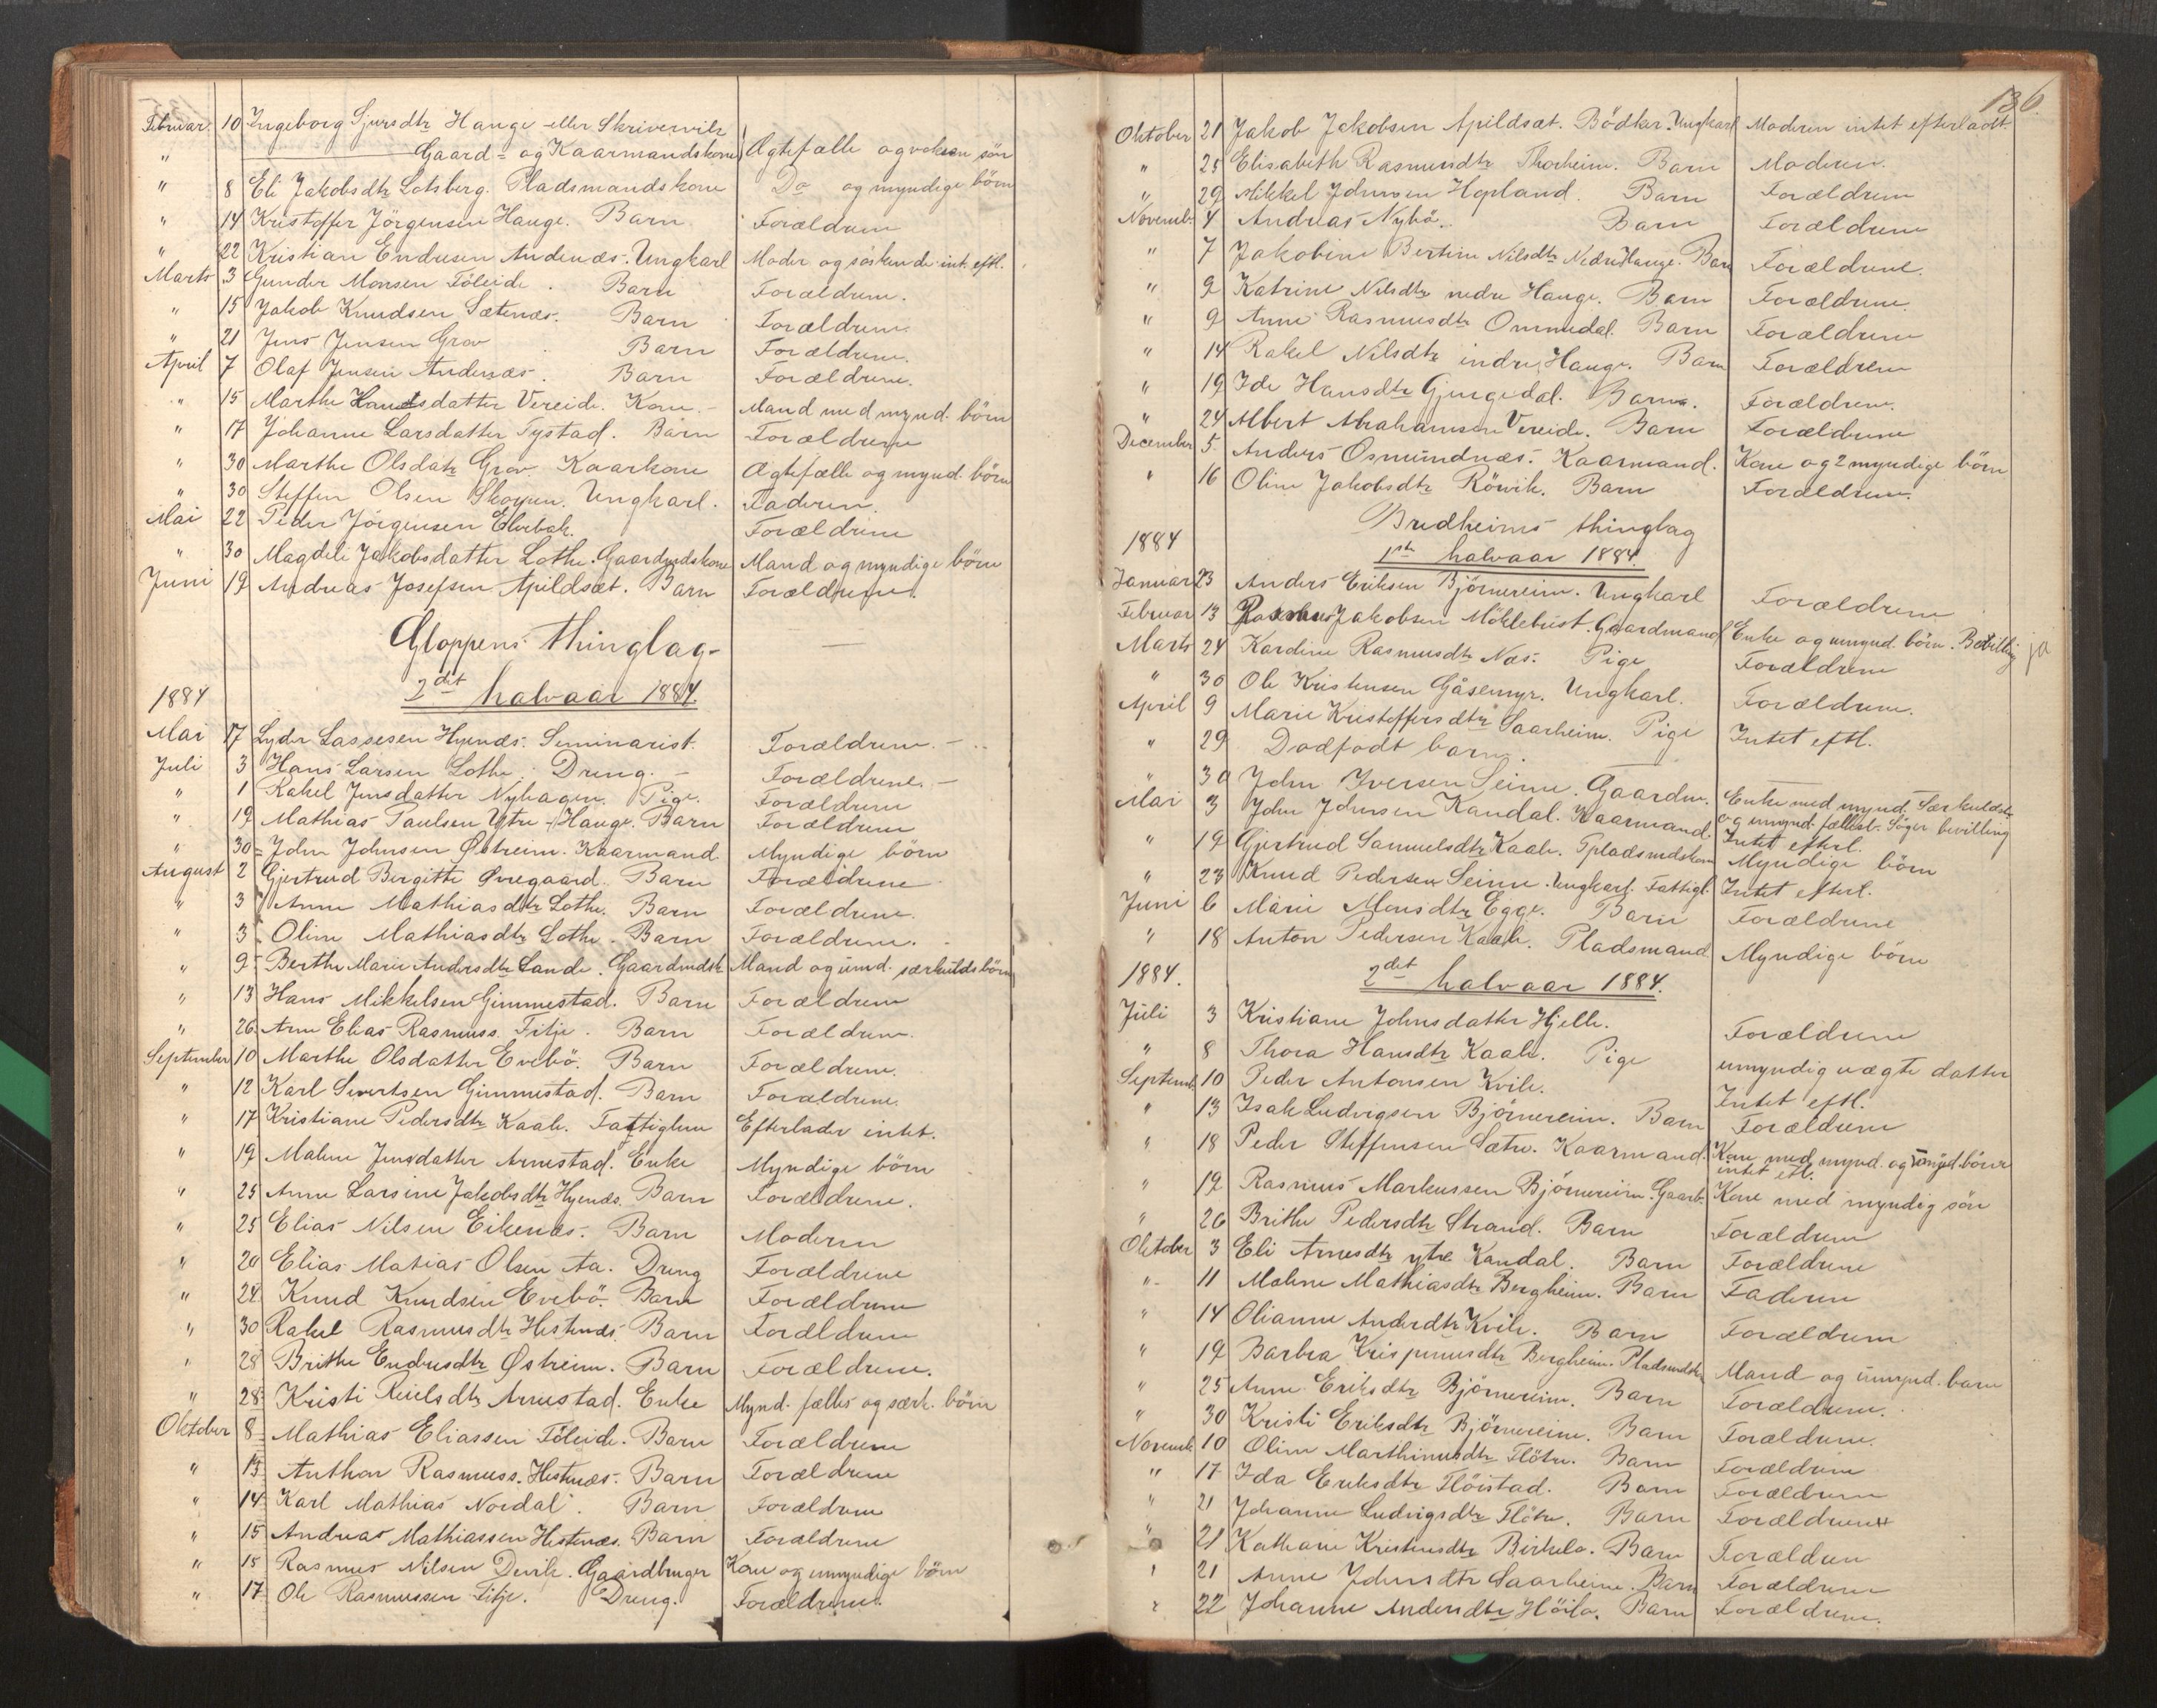 Februar 10 Ingeborg Sjursdtr Hauge eller Skrivervik
" Gaard- og Kaarmandskone Ægtefælle og voksen søn
" 8 Eli Jakobsdtr Lotsberg. Pladsmandskone Do og myndige børn
" 14 Kristoffer Jörgensen Hauge. Barn Forældrene
" 22 Kristian Endresen Andenæs. Ungkarl Moder og söskende int. eftl.
Marts 3 Gunder Monsen Föleide. Barn Forældrene.
" 15 Jakob Knudsen Sætenæs. Barn Forældrene.
" 21 Jens Jensen Grov Barn Forældrene.
April 7 Olaf Jensen Andenæs. Barn Forældrene.
" 15 Marthe Hansdatter Vereide. Kone. Mand med mynd. börn
" 17 Johanne Larsdatter Tystad. Barn Forældrene
" 30 Marthe Olsdatr Grov Kaarkone Ægtefælle og mynd. börn
" 30 Steffen Olsen Skoyen. Ungkarl. Faderen.
Mai 22 Peder Jörgensen Elvebak. Forældrene
" 30 Magdeli Jakobsdatter Lothe. Gaardmdskone Mand og myndige börn
Juni 19 Andreas Josefsen Apildsæt. Barn Forældrene.
Gloppens thinglag
1884 2det halvaar 1884.
Mai 17 Lyder Lassesen Hyenæs. Seminarist. Forældrene.
Juli 3 Hans Larsen Lothe. Dreng. Forældrene.
" 1 Rakel Jensdatter Nyhagen. Pige. Forældrene
" 19 Mathias Paulsen Ytre-Hauge. Barn Forældrene
" 30 John Johnsen Østreim. Kaarmand Myndige börn
August 2 Gjertrud Bergitte Øvregaard. Barn Forældrene
" 3 Anne Mathiasdtr Lothe. Barn Forældrene.
" 3 Oline Mathiasdtr Lothe. Barn Forældrene.
" 9 Berthe Marie Andersdtr Sande. Gaardmdsk. Mand og umd. særkuldsbörn
" 13 Hans Mikkelsen Gimmestad. Barn Forældrene
" 26 Arne Elias Rasmuss. Fitje. Barn Forældrene.
September 10 Marthe Olsdatter Evebö. Barn Forældrene.
" 12 Karl Sivertsen Gimmestad. Barn Forældrene.
" 17 Kristiane Pedersdtr Kaale. Fattiglem Efterlader intet.
" 19 Malene Jensdatter Arnestad. Enke Myndige börn
" 25 Anne Larsine Jakobsdtr Hyenæs. Barn Forældrene.
" 25 Elias Nilsen Eikenæs. Barn Moderen
" 20 Elias Matias Olsen Aa. Dreng Forældrene
" 24 Knud Knudsen Evebö. Barn Forældrene
" 30 Rakel Rasmusdtr Hestenæs. Barn Forældrene
" 28 Brithe Endresdtr Østreim. Barn Forældrene.
" 28 Kristi Reielsdtr Arnestad. Enke Mynd. fælles og særk. börn
Oktober 8 Mathias Eliassen Föleide. Barn Forældrene
" 13 Anthon Rasmuss. Hestenæs. Barn Forældrene
" 14 Karl Mathias Nordal. Barn Forældrene
" 15 Andreas Mathiassen Hestenæs. Barn Forældrene
" 15 Rasmus Nilsen Devik. Gaardbruger Kone og umyndige börn
" 17 Ole Rasmussen Fitje. Dreng. Forældrene.
136
Oktober 21 Jakob Jakobsen Apildsæt. Bödker. Ungkarl Moderen intet efterladt
" 25 Elisabeth Rasmusdtr Thorheim. Barn Moderen.
" 29 Mikkel Johnsen Hopland. Barn Forældrene
Novemb. 4 Andreas Nybö. Barn Forældrene
" 7 Jakobine Bertine Nilsdtr Nedre Hauge. Barn Forældrene.
" 9 Katrine Nilsdtr nedre Hauge. Barn Forældrene.
" 9 Anne Rasmusdtr Ommedal. Barn Forældrene
" 14 Rakel Nilsdtr indre Hauge. Barn Forældrene
" 19 Ide Hansdtr Gjengedal. Barn. Forældrene.
" 24 Albert Abrahamsen Vereide. Barn Forældrene
December 5 Anders Osmundnæs. Kaarmand. Kone og 2 myndige börn
" 16 Oline Jakobsdtr Rövik. Barn Forældrene.
Bredheims thinglag
1884 1ste halvaar 1884.
Januar 23 Anders Eriksen Björnereim. Ungkarl Forældrene
Februar 13 Rasmus Jakobsen Möklebust. Gaardmand Enke og umynd. börn. Bevilling ja
Marts 24 Kardine Rasmusdtr Næs. Pige Forældrene
" 30 Ole Kristensen Gåsemyr. Ungkarl. Forældrene.
April 9 Marie Kristoffersdtr Saarheim. Pige Intet eftl.
" 29 Dødfødt barn.
" 30 John Iversen Seime. Gaardm. Enke med mynd. Særkuldsb.
og umynd. fællesb. Söger bevilling
Mai 3 John Johnsen Kandal. Kaarmand. Intet efterl.
" 19 Gjertrud Samuelsdtr Kaale. Pladsmdskone Myndige börn
" 23 Knud Pedersen Seime. Ungkarl. Fattigl. Intet efterl.
Juni 6 Marie Monsdtr Egge. Barn Forældrene
" 18 Anton Pedersen Kaale. Pladsmand Myndige börn
1884. 2det halvaar 1884.
Juli 3 Kristiane Johnsdatter Hjelle. Forældrene
" 8 Thora Hansdtr Kaale. Pige umyndig uægte datter
Septemb. 10 Peder Antonsen Kvile. Intet eftl.
" 13 Isak Ludvigsen Björnereim. Barn Forældrene
" 18 Peder Steffensen Sætre. Kaarmand. Kone med mynd. og umynd. börn
intet eftl.
" 19 Rasmus Markussen Björnereim. Gaarb. Kone med myndig sön
" 26 Brithe Pedersdtr Strand. Barn Forældrene
Oktober 3 Eli Arnesdtr ytre Kandal. Barn Forældrene
" 11 Malene Mathiasdtr Bergheim. Barn Faderen
" 14 Olianne Andersdtr Kvile. Barn Forældrene
" 19 Barbra Krispinusdtr Bergheim. Pladsmdsk. Mand og umynd. barn
" 25 Anne Eriksdtr Björnereim. Barn Forældrene.
" 30 Kristi Eriksdtr Björnereim. Barn Forældrene.
Novemb. 10 Oline Marthinusdtr Flötre. Barn Forældrene
" 17 Ida Eriksdtr Flöistad. Barn Forældrene
" 21 Johanne Ludvigsdtr Flötre. Barn Forældrene
" 21 Kathrine Kristensdtr Birkelo. Barn Forældren
" 21 Anne Johnsdtr Saarheim. Barn Forældrene
" 22 Johanne Andersdtr Höilo. Barn Forældrene.